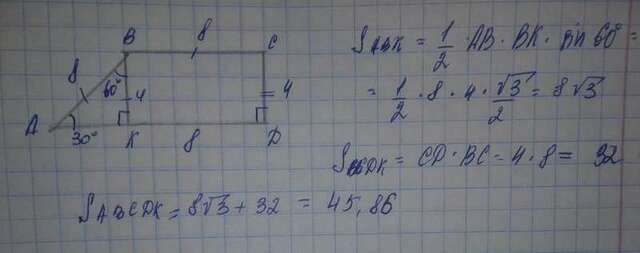 B 8 C
8 60° 4 4
A 30° K 8 D
S ABK = 1/2 · AB · BK · sin 60° =
= 1/2 · 8 · 4 · √3/2 = 8√3
S BCDK = CD · BC = 4 · 8 = 32
S ABCDK = 8√3 + 32 = 45,86